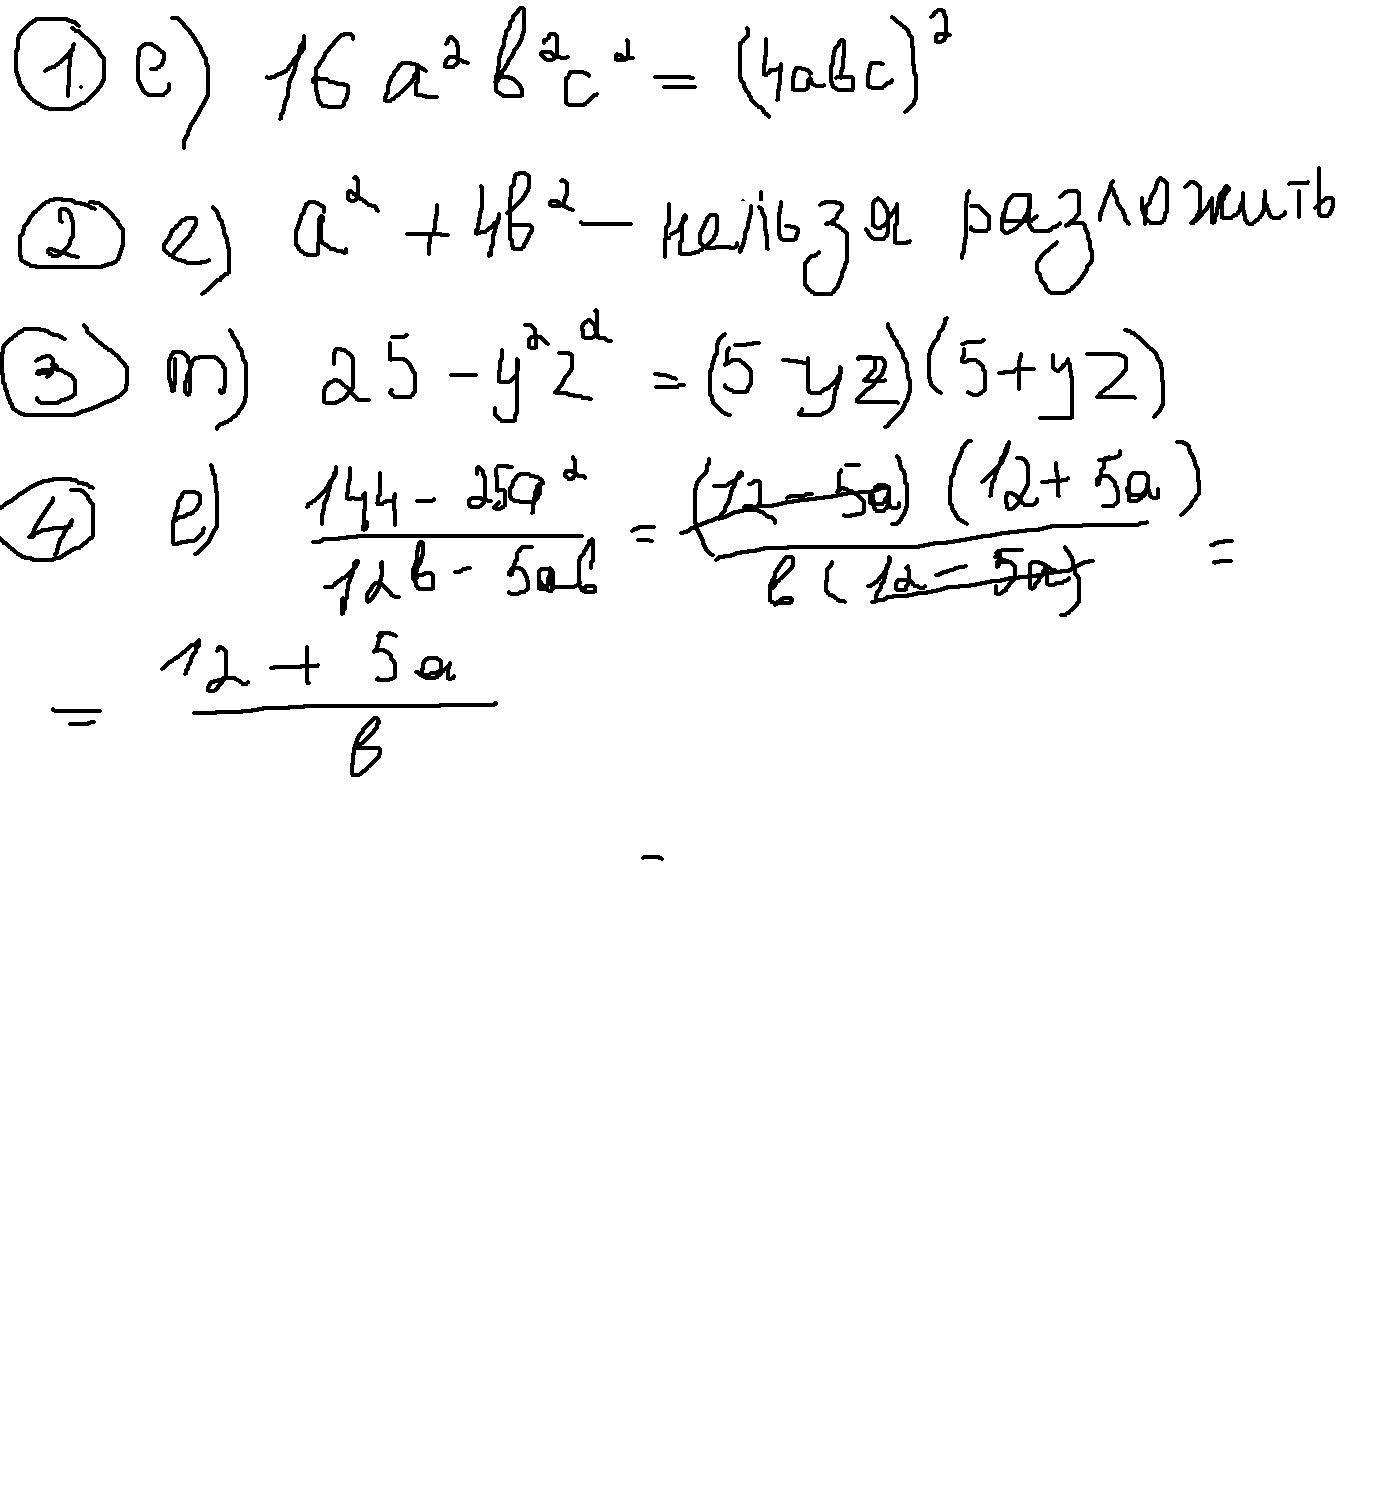 1. е) 16 a² b² c² = (4abc)²
2 е) a² + 4b² – нельзя разложить
3 m) 25 – y²z² = (5 – yz)(5 + yz)
4 е) (144 – 25a²)/(12b – 5ab) = ((12 – 5a)(12 + 5a))/(b(12 – 5a)) =
= (12 + 5a)/b
–